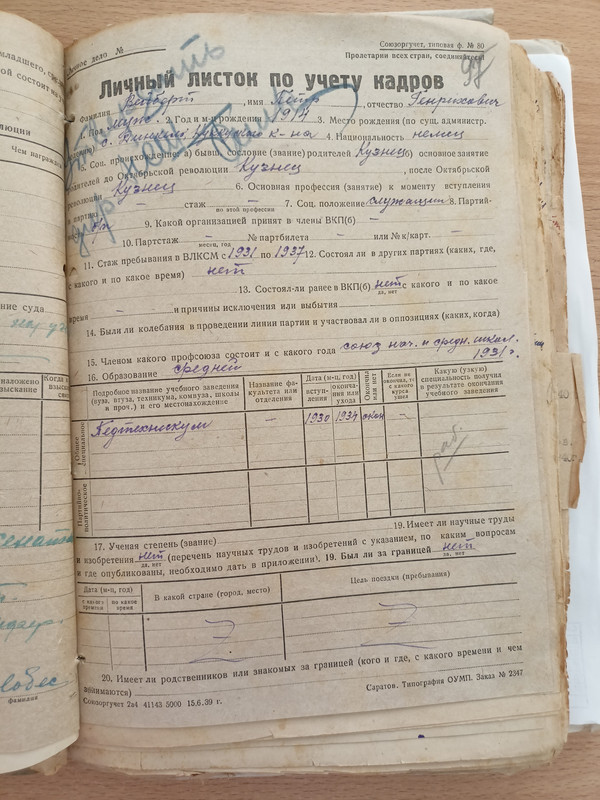 Союзоргучет, типовая ф. № 80
Личное дело №
Пролетарии всех стран, соединяйтесь!
98
Личный листок по учету кадров
1. Фамилия Вейберт, имя Петр, отчество Генрихович
1. Пол муж. 2. Год и м-ц рождения 1914 3. Место рождения (по сущ. администр.
делению) с. Динкель к-на 4. Национальность немец
5. Соц. происхождение: а) бывш. сословие (звание) родителей Кузнец б) основное занятие
родителей до Октябрьской революции Кузнец, после Октябрьской
революции Кузнец 6. Основная профессия (занятие) к моменту вступления
в партию – стаж – 7. Соц. положение служащий 8. Партий-
по этой профессии
б/п 9. Какой организацией принят в члены ВКП(б) –
10. Партстаж – № партбилета – или № к/карт. –
месяц, год
11. Стаж пребывания в ВЛКСМ с 1931 по 1937 12. Состоял ли в других партиях (каких, где,
с какого и по какое время) нет
13. Состоял-ли ранее в ВКП(б) нет с какого и по какое
да, нет
время – и причины исключения или выбытия
14. Были ли колебания в проведении линии партии и участвовал ли в оппозициях (каких, когда)
15. Членом какого профсоюза состоит и с какого года союз нач. и средн. школ.
1931 г.
16. Образование средний
Подробное название учебного заведения (вуза, втуза, техникума, комвуза, школы и проч.) и его местонахождение
Название факультета или отделения
Дата (м-ц, год)
вступления
окончания или ухода
Окончил или нет
Если не окончил, то с какого курса ушел
Какую (узкую) специальность получил в результате окончания учебного заведения
Общее и специальное
Педтехникум – 1930 1934 окон –
раб.
Партийно-политическое
17. Ученая степень (звание) 19. Имеет ли научные труды
и изобретения нет (перечень научных трудов и изобретений с указанием, по каким вопросам
да, нет
и где опубликованы, необходимо дать в приложении). 19. Был ли за границей нет
да, нет
Дата (м-ц, год)
с какого времени
по какое время
В какой стране (город, место)
Цель поездки (пребывания)
20. Имеет ли родственников или знакомых за границей (кого и где, с какого времени и чем
занимаются)
Союзоргучет 2а4 41143 5000 15.6.39 г.
Саратов. Типография ОУМП. Заказ № 2347